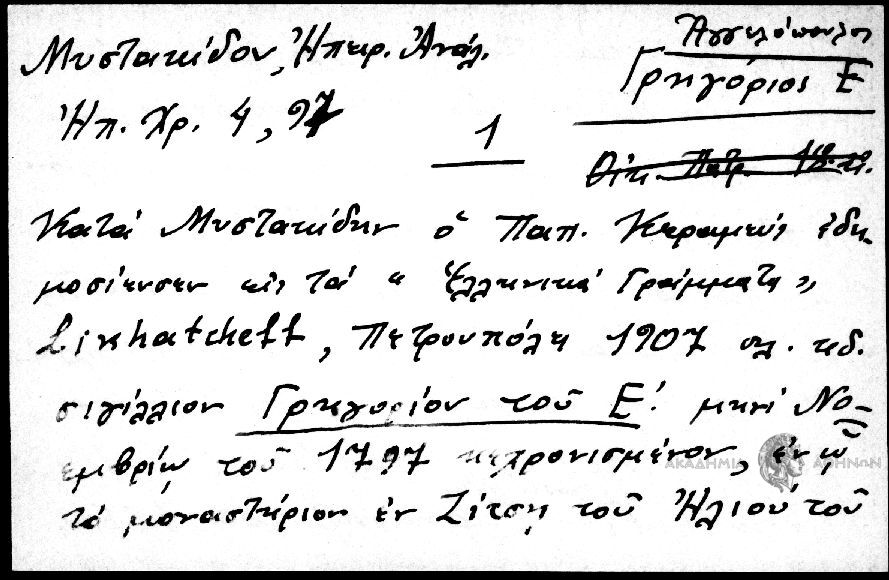 Μυστακίδου, Ἠπειρ. Ἀνάλ.
Ἠπ. Χρ. 4, 97
1
Ἀγγελόπουλοι
Γρηγόριοι Ε
Οἰκ. Πατρ.
Κατά Μυστακίδην ὁ Παπ. Κεραμεύς ἐδη-
μοσίευσεν εἰς τά "Ἑλληνικά Γράμματα"
Likhatcheff, Πετρουπόλει 1907 σελ. κεδ.
σιγίλλιον Γρηγορίου τοῦ Ε΄. μηνί Νο-
εμβρίῳ τοῦ 1797 κεχρονισμένον, ἐν ᾧ
τό μοναστήριον ἐν Ζίτσῃ τοῦ Ἠλιού τοῦ
ΑΚΑΔΗΜΙΑ ΑΘΗΝΩΝ